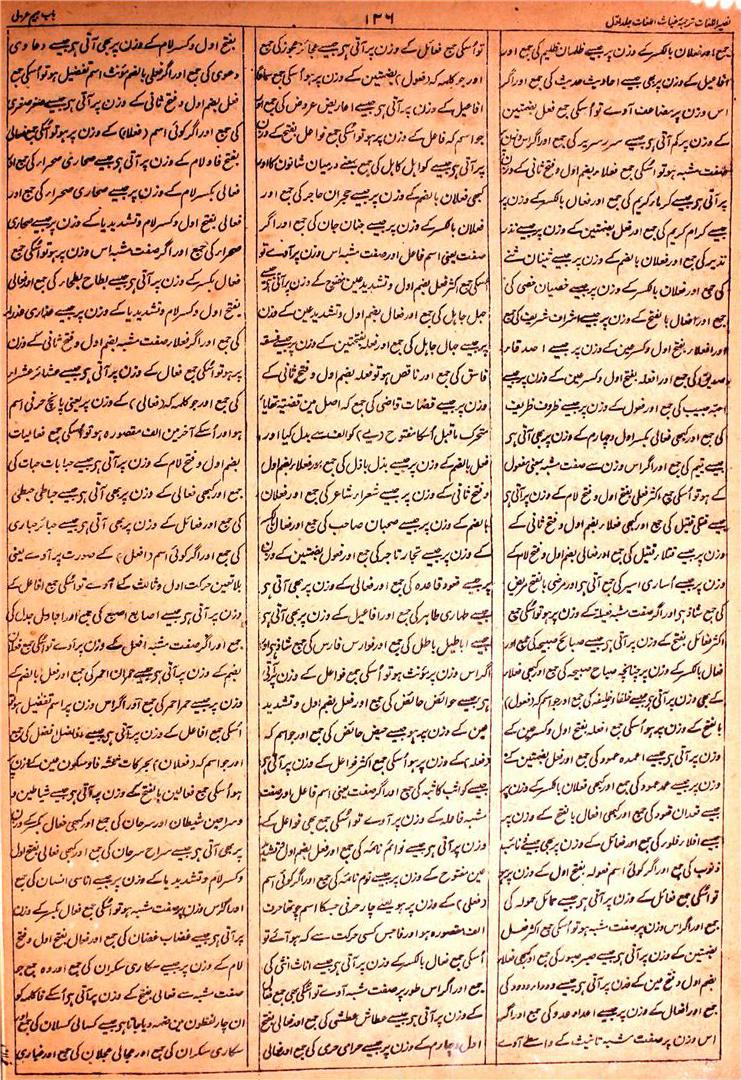 نصیر اللغات ترجمہ غیاث اللغات جلد اول
۱۲۶
باب جیم عربی
جمع اور فعلان بالکسر کے وزن پر جیسے ظلمان ظلیم کی جمع اور
افاعیل کے وزن پر بھی جیسے احادیث حدیث کی جمع اور اگر
اس وزن پر مضاعف آوے تو اسکی جمع فعل بضمتین
کے وزن پر کم آتی ہی جیسے سرر سریر کی جمع اور اگر اس وزن پر
صفت مشبہ ہو تو اسکی جمع فعلاء بضم اول و فتح ثانی کے وزن
پر آتی ہی جیسے کرماء کریم کی جمع اور فعال بالکسر کے وزن پر
جیسے کرام کریم کی جمع اور فعل بضمتین کے وزن پر جیسے نذر
نذیر کی جمع اور فعلان بالضم کے وزن پر جیسے ثنیان ثنی
کی جمع اور فعلان بالکسر کے وزن پر جیسے خصیان خصی کی
جمع اور افعال بالفتح کے وزن پر جیسے اشراف شریف کی جمع
اور افعلاء بفتح اول و کسر عین کے وزن پر جیسے اصدقاء
صدیق کی جمع اور افعلہ بفتح اول و کسر عین کے وزن پر جیسے
حبیب کی جمع اور فعول کے وزن پر جیسے ظروف ظریف
کی جمع اور کبھی فعالی بکسر اول و چہارم کے وزن پر بھی آتی ہی
جیسے یتیم کی جمع اور اگر اس وزن سے صفت مشبہ بمعنی مفعول
کے ہو تو اسکی جمع اکثر فعلی بفتح اول و فتح لام کے وزن پر آتی ہی
جیسے قتلی قتیل کی جمع اور کبھی فعلاء بضم اول و فتح ثانی کے
وزن پر جیسے قتلاء قتیل کی جمع اور فعالی بضم اول و فتح لام کے
وزن پر جیسے اساری اسیر کی جمع آتی ہی اور مرضی بالفتح مریض
کی جمع شاذ ہی اور اگر صفت مشبہ فعیلۃ کے وزن پر ہو تو اسکی جمع
اکثر فعائل بفتح کے وزن پر آتی ہی جیسے صبائح صبیحہ کی جمع اور
فعال بالکسر کے وزن پر چنانچہ صباح صبیحہ کی جمع اور کبھی فعلاء
کے بھی وزن پر آتی ہی جیسے خلفاء خلیفہ کی جمع اور جو اسم کہ (فعول)
بالفتح کے وزن پر ہو اسکی جمع افعلہ بفتح اول و کسر عین کے
وزن پر آتی ہی جیسے اعمدہ عمود کی جمع اور فعل بضمتین کے
وزن پر جیسے عمد عمود کی جمع اور کبھی فعلان بالکسر کے وزن پر
جیسے قعدان قعود کی جمع اور کبھی افعال بالفتح کے وزن پر
جیسے افلاء فلو کی جمع اور فعائل کے وزن پر بھی جیسے ذنائب
ذنوب کی جمع اور اگر کوئی اسم فعولہ بفتح اول کے وزن پر ہو
تو اسکی جمع فعائل کے وزن پر آتی ہی جیسے حمائل حمولہ کی
جمع اور اگر اس وزن پر صفت مشبہ ہو تو اسکی جمع اکثر فعل
بضمتین کے وزن پر آتی ہی جیسے صبر صبور کی جمع اور کبھی فعلاء
بضم اول و فتح عین کے وزن پر آتی ہی جیسے ودداء ودود کی
جمع اور افعال کے وزن پر جیسے اعداء عدو کی جمع اور اگر
اس وزن پر صفت مشبہ تانیث کے واسطے آوے
تو اسکی جمع فعائل کے وزن پر آتی ہی جیسے عجائز عجوز کی جمع
اور جو کلمہ کہ (فعول) بضمتین کے وزن پر ہو اسکی جمع
افاعیل کے وزن پر آتی ہی جیسے اعاریض عروض کی جمع اور
جو اسم کہ فاعل کے وزن پر ہو تو اسکی جمع فواعل بفتح کے وزن
پر آتی ہی جیسے کواہل کاہل کی جمع بمعنے درمیان شانون کا اور
کبھی فعلان بالضم کے وزن پر جیسے حجران حاجر کی جمع اور
فعلان بالکسر کے وزن پر جیسے جنان جان کی جمع اور اگر
صفت یعنی اسم فاعل اور صفت مشبہ اس وزن پر آوے تو
اسکی جمع اکثر فعل بضم اول و تشدید عین کے وزن پر آتی ہی جیسے
جہل جاہل کی جمع اور فعال بضم اول و تشدید عین کے وزن
پر جیسے جہال جاہل کی جمع اور فعلہ بفتحتین کے وزن پر جیسے فسقہ
فاسق کی جمع اور ناقص ہو تو فعلہ بضم اول و فتح ثانی کے
وزن پر جیسے قضات قاضی کی جمع کہ اصل مین قضیۃ تھا یا
متحرک ماقبل اسکا مفتوح (ی) کو الف سے بدل کیا اور
فعل بالضم کے وزن پر جیسے بذل باذل کی جمع اور فعلاء بضم اول
و فتح ثانی کے وزن پر جیسے شعراء شاعر کی جمع اور فعلان
بالضم کے وزن پر جیسے صحبان صاحب کی جمع اور فعال بالکسر
کے وزن پر جیسے تجار تاجر کی جمع اور فعول بضمتین کے وزن
پر جیسے قعود قاعدہ کی جمع اور فعالی کے وزن پر بھی آتی ہی
جیسے طہاری طاہر کی جمع اور افاعیل کے وزن پر بھی آتی ہی
جیسے اباطیل باطل کی جمع اور فوارس فارس کی جمع شاذ ہی اور
اگر اس وزن پر مؤنث ہو تو اسکی جمع فواعل کے وزن پر آتی
ہی جیسے حوائض حائض کی جمع اور فعل بضم اول و تشدید
عین کے وزن پر ہو جیسے حیض حائض کی جمع اور جو اسم کہ
(فاعلہ) کے وزن پر ہو اسکی جمع اکثر فواعل کے وزن پر آتی ہی
جیسے کواثب کاثبہ کی جمع اور اگر صفت یعنی اسم فاعل اور صفت
مشبہ فاعلہ کے وزن پر آوے تو اسکی جمع بھی فواعل کے
وزن پر آتی ہی جیسے نوائم نائمہ کی جمع اور فعل بضم اول و تشدید
عین مفتوح کے وزن پر جیسے نوم نائمہ کی جمع اور اگر کوئی اسم
(فعلی) کے وزن پر ہو یعنے چار حرفی جسکا اسم چوتھا حرف
الف مقصورہ ہو اور فا جس کسی حرکت سے کہ ہو آئے تو
اسکی جمع فعال بالکسر کے وزن پر آتی ہی جیسے اناث انثی کی
جمع اور اگر اس طور پر صفت مشبہ آوے تو اسکی بھی جمع فعال
کے وزن پر آتی ہی جیسے عطاش عطشی کی جمع اور فعالی بفتح
اول و چہارم کے وزن پر جیسے حرامی حرمی کی جمع اور فعالی
بفتح اول و کسر لام کے وزن پر آتی ہی جیسے دعاوی
دعوی کی جمع اور اگر فعلی بالضم مؤنث اسم تفضیل ہو تو اسکی جمع
فعل بضم اول و فتح ثانی کے وزن پر آتی ہی جیسے صغر صغری
کی جمع اور اگر کوئی اسم (فعلاء) کے وزن پر ہو تو اسکی جمع فعالی
بفتح فا و لام کے وزن پر آتی ہی جیسے صحاری صحراء کی جمع اور
فعالی بکسر لام کے وزن پر جیسے صحاری صحراء کی جمع اور
فعالی بفتح اول و کسر لام و تشدید یا کے وزن پر جیسے صحاری
صحراء کی جمع اور اگر صفت مشبہ اس وزن پر ہو تو اسکی جمع
فعال بکسر کے وزن پر آتی ہی جیسے بطاح بطحاء کی جمع اور فعالی
بفتح اول و کسر لام و تشدید یا کے وزن پر جیسے عذاری عذراء
کی جمع اور اگر فعلاء صفت مشبہ بضم اول و فتح ثانی کے وزن
پر ہو تو اسکی جمع فعال کے وزن پر آتی ہی جیسے عشار عشراء
کی جمع اور جو کلمہ کہ (فعالی) کے وزن پر یعنی پانچ حرفی اسم
ہو اور اسکے آخر مین الف مقصورہ ہو تو اسکی جمع فعالیات
بضم اول و فتح لام کے وزن پر آتی ہی جیسے حبابات حباب کی
جمع اور کبھی فعالی کے وزن پر بھی آتی ہی جیسے حباطی حبطی
کی جمع اور فعائل کے وزن پر بھی آتی ہی جیسے حبائر حباری
کی جمع اور اگر کوئی اسم (افعل) کے صورت پر آوے یعنی
بلا تعین حرکت اول و ثالث کے آوے تو اسکی جمع افاعل کے
وزن پر آتی ہی جیسے اصابع اصبع کی جمع اور اجادل اجدل کی
جمع اور اگر صفت مشبہ افعل کے وزن پر آوے تو اسکی جمع فعلان
بضم کے وزن پر آتی ہی جیسے حمران احمر کی جمع اور فعل بالضم کے
وزن پر جیسے حمر احمر کی جمع اور اگر اس وزن پر اسم تفضیل ہو تو
اسکی جمع افاعل کے وزن پر آتی ہی جیسے افاضل افضل کی جمع
اور جو اسم کہ (فعلان) بحرکات ثلثہ فا و سکون عین کے وزن پر
ہو اسکی جمع فعالین بالفتح کے وزن پر آتی ہی جیسے شیاطین و
سراحین شیطان اور سرحان کی جمع اور کبھی فعال بکسر کے وزن
پر بھی آتی ہی جیسے سراح سرحان کی جمع اور کبھی فعالی بفتح اول
و کسر لام و تشدید یا کے وزن پر جیسے اناسی انسان کی جمع
اور اگر اس وزن پر صفت مشبہ ہو تو اسکی جمع فعال بکسر کے وزن
پر آتی ہی جیسے غضاب غضبان کی جمع اور فعالی بفتح اول و فتح
لام کے وزن پر جیسے سکاری سکران کی جمع اور وہ جمع جو
صفت مشبہ سے فعالی بفتح کے وزن پر آتی ہی اسکے فا کلمہ کو
ان چار لفظون مین ضمہ دیا جاتا ہی جیسے کسالی کسلان کی جمع اور
سکاری سکران کی جمع اور عجالی عجلان کی جمع اور غیاری